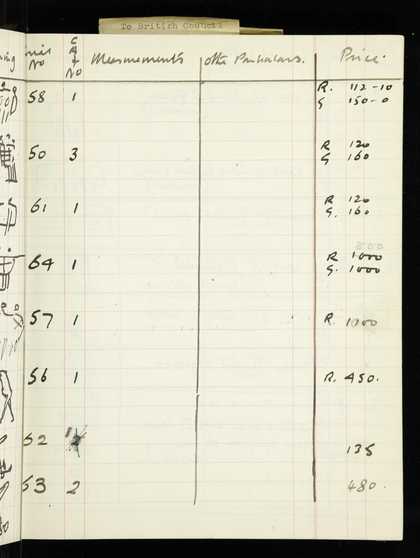 To British Council
No CAT No Measurements other Particulars. Price.
58 1 R. 112-10
G 150-0
50 3 R 120
G 160
61 1 R 120
G. 160
500
64 1 R 1000
G. 1000
57 1 R. 1000
56 1 R. 450.
52 135
53 2 480.